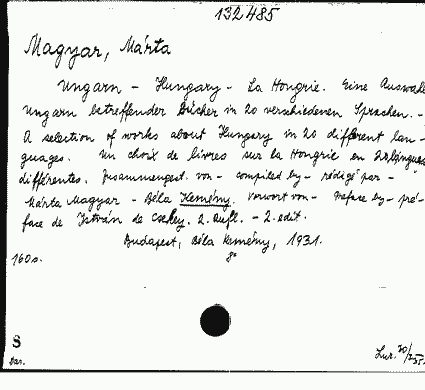 132485
Magyar, Márta
Ungarn - Hungary - La Hongrie. Eine Auswahl
Ungarn betreffender Bücher in 20 verschiedenen Sprachen. -
A selection of works about Hungary in 20 different lan-
guages. Un choix de livres sur la Hongrie en 20 langues
différentes. Zusammengest. von - compiled by - rédigé par -
Márta Magyar - Béla Kemény. Vorwort von - Preface by - pré-
face de István de Csekey. 2. Aufl. - 2. edit.
Budapest, Béla Kemény, 1931.
160 s. 8°
S